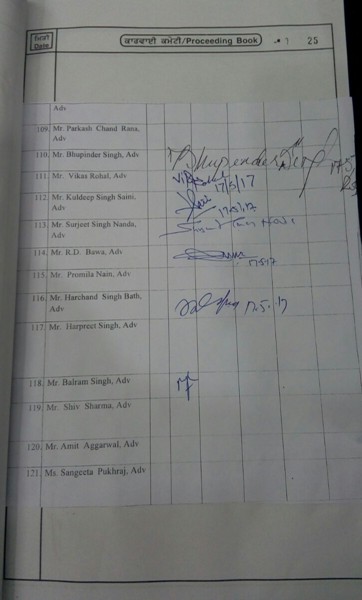 ਮਿਤੀ
Date
ਕਾਰਵਾਈ ਕਮੇਟੀ/Proceeding Book
25
Adv
109. Mr. Parkash Chand Rana,
Adv
110. Mr. Bhupinder Singh, Adv
Bhupender Singh
111. Mr. Vikas Rohal, Adv
17/5/17
112. Mr. Kuldeep Singh Saini,
Adv
113. Mr. Surjeet Singh Nanda,
Adv
114. Mr. R.D. Bawa, Adv
17.5.17
115. Mr. Promila Nain, Adv
116. Mr. Harchand Singh Bath,
Adv
17.5.17
117. Mr. Harpreet Singh,
Adv
118. Mr. Balram Singh, Adv
119. Mr. Shiv Sharma, Adv
120. Mr. Amit Aggarwal, Adv
121. Ms. Sangeeta Pukhraj, Adv